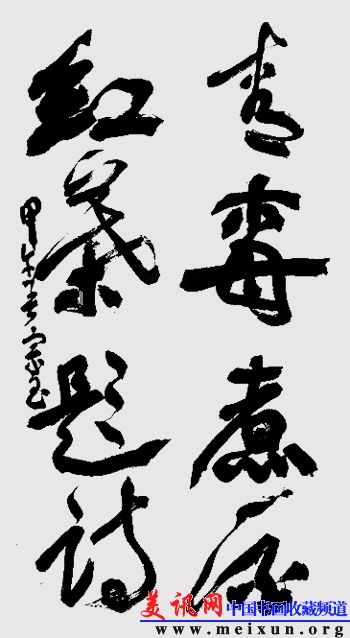 青梅煮酒
紅葉題詩
甲午宗玉
美讯网
中国书画收藏频道
www.meixun.org